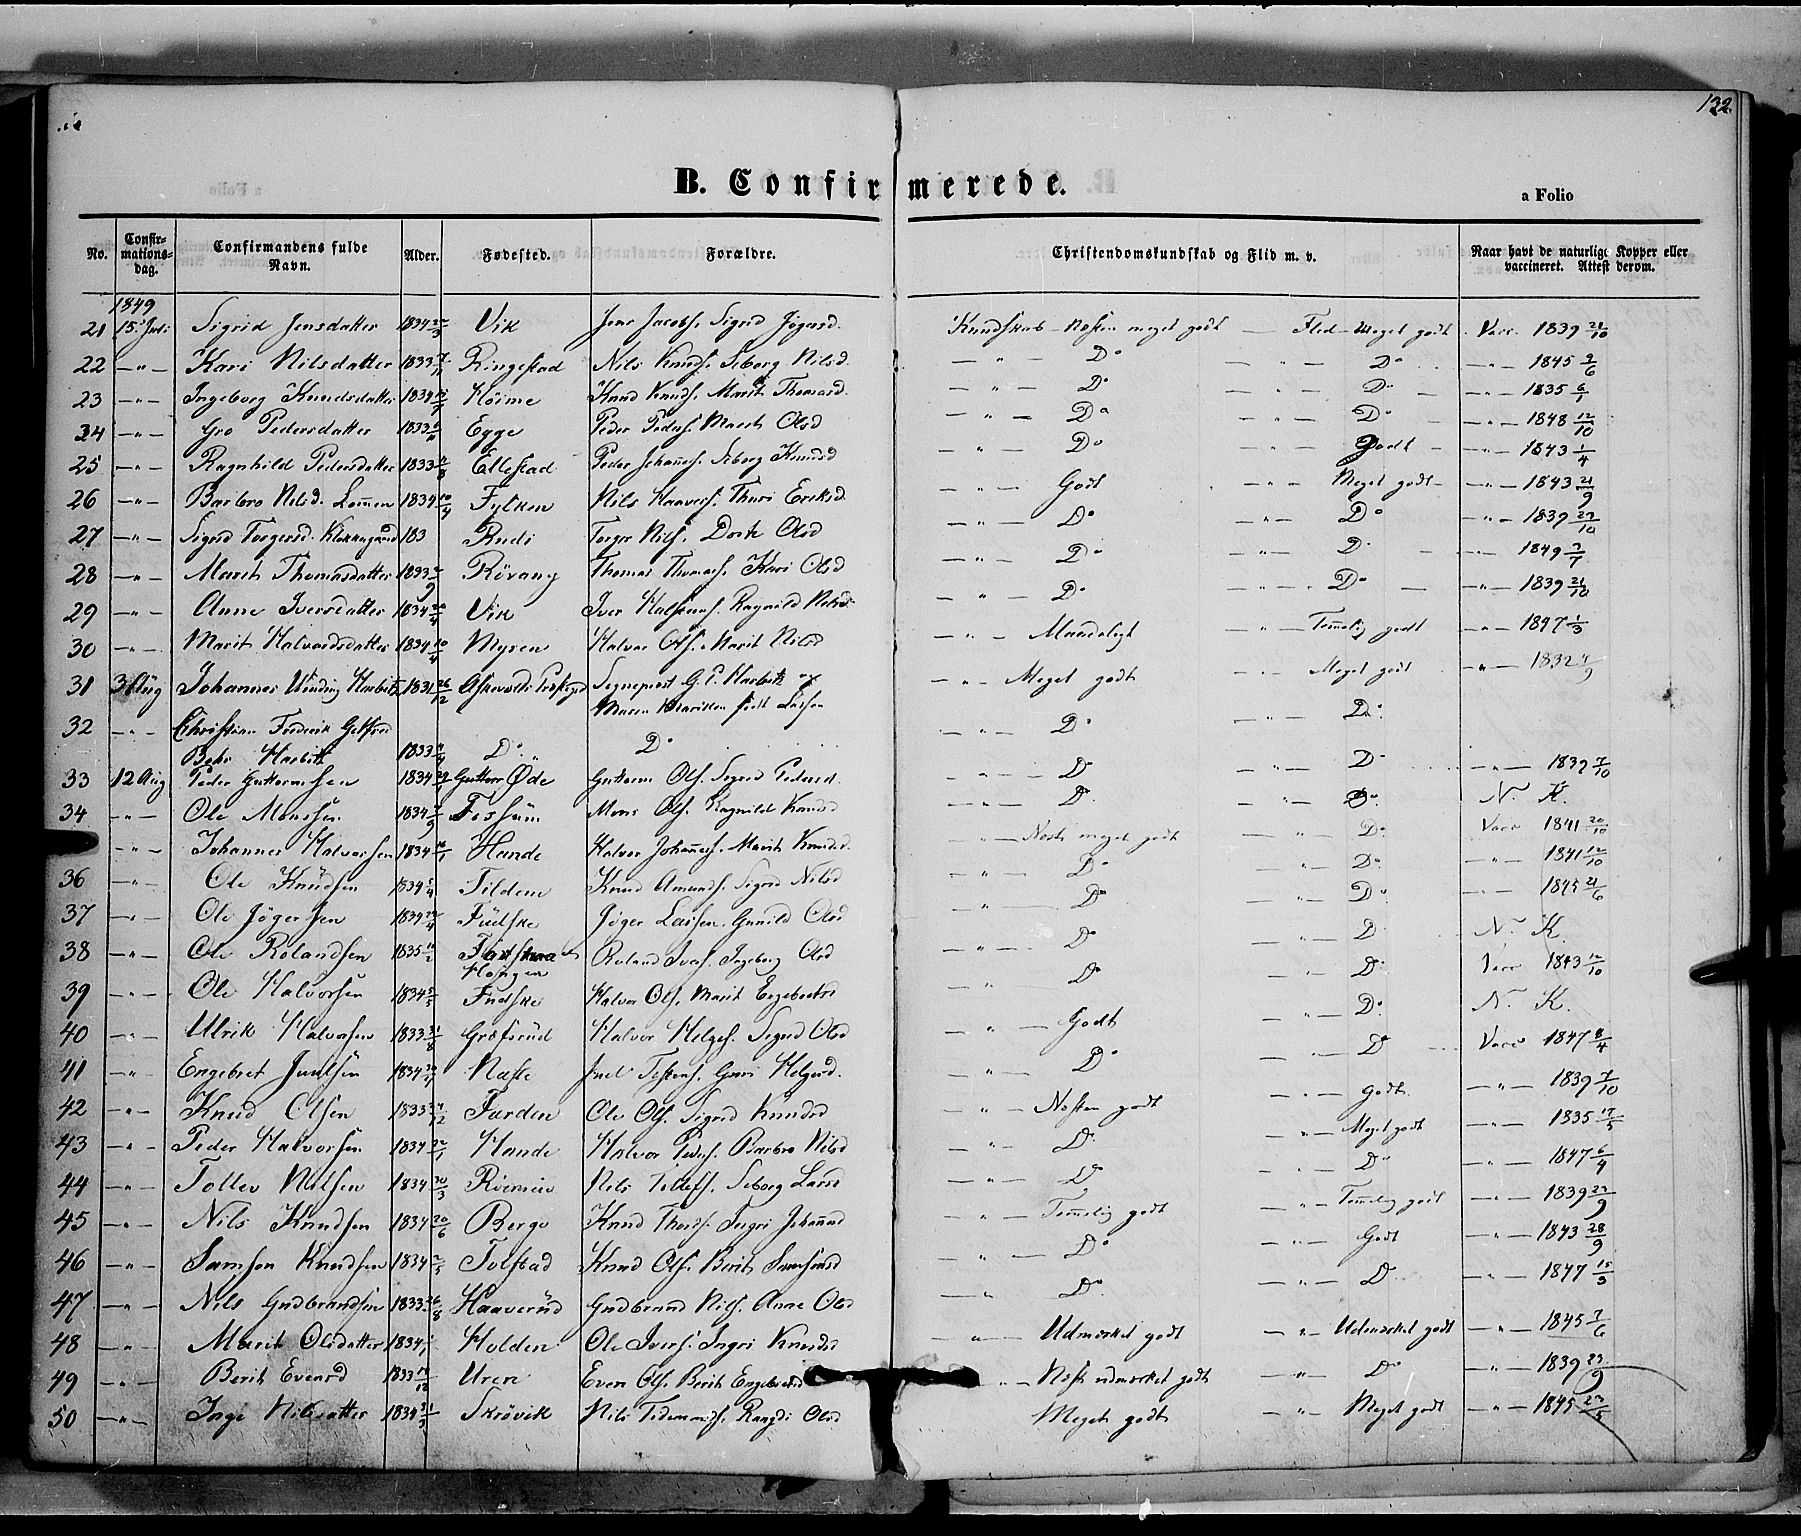 132.
B. Confirmerede.
a Folio
No. Confirmations-dag. Confirmandens fulde Navn. Alder. Fødested. Forældre. Christendomskundskab og Flid m. v. Naar havt de naturlige Kopper eller vaccineret. Attest derom.
1849
21 15 Juli Sigrid Jensdatter 1834 Vik Jens Jacobs. Sigrid Kundskab - Næsten meget godt — Flid - Meget godt Vacc. 1839 21/10
22 —"— Kari Nilsdatter 1833 Ringestad Nils Knuds. Siborg Nilsd. —"— Do —"— Do —"— 1845 2/6
23 —"— Ingeborg Knudsdatter 1834 Høime Knud Knuds. Marit Thomasd. —"— Do —"— Do —"— 1835 6/1
24 —"— Gro Pedersdatter 1833 Egge Peder Peders. Marit Olsd —"— Do —"— Do —"— 1848 12/10
25 —"— Ragnhild Pedersdatter 1833 Ellestad Peder Johañes. Siborg Knudsd —"— Do —"— Godt —"— 1843 1/4
26 —"— Barbro Nilsd. Lomen 1834 10/4 Fylken Nils Haavers. Thuri Eriksd. —"— Godt —"— Meget godt —"— 1843 21/9
27 —"— Sigrid Torgersd. 183 Rudi Torger Nils. Olsd —"— Do —"— Do —"— 1839 23/10
28 —"— Marit Thomasdatter 1833 Røvang Thomas Thomas. Kari Olsd —"— Do —"— Do —"— 1849 7/7
29 —"— Anne Iversdatter 1834 Vik Iver Ragnild —"— Do —"— Do —"— 1839 21/10
30 —"— Marit Halvordsdatter 1834 10/4 Myren Halvor Ols. Marit Nilsd —"— Maadeligt —"— Temelig godt —"— 1847 1/3
31 3 Aug Johannes Winding Harbitz 1831 26/12 Sognepræst G. P. Harbitz og —"— Meget godt —"— Meget godt —"— 1832
Maren født Lassen
32 —"— Christian Frederik Gotfred —"— Do —"— Do
Harbitz 1833 Do Do
33 12 Aug Peder Guttormsen 1834 Øde Guttorm Ols. Sigrid Pedersd. —"— Do —"— Do —"— 1839 7/10
34 —"— Ole Monssen 1834 Fossüm Mons Ols. Ragnilde Knudsd —"— Do —"— Do N. K.
—"— Johannes Halvorsen 1834 Hande Halvor Johañes. Marit Knudsd. —"— Næst meget godt —"— Do Vacc 1841 20/10
36 —"— Ole Knüdsen 1834 5/4 Tildem Knud Amunds. Sigrid Nilsd —"— Do —"— Do —"— 1841 12/10
37 —"— Ole Jøgersen 1834 Füdske Jøger Lassen. Gunild Olsd —"— Do —"— Do —"— 1845 21/6
38 —"— Ole Rolandsen 1835 Roland Ivers. Ingeborg Olsd —"— Do —"— Do N. K.
39 —"— Ole Halvorsen 1834 5/5 Fudske Halvor Ols. Marit Engebretsd —"— Do —"— Do Vacc 1843 12/10
40 —"— Ulrik Halvorsen 1833 31/8 Grøfsrüd Halvor Helges. Sigrid Olsd —"— Godt —"— Do N. K.
41 —"— Engebret Juulsen 1834 Næste Juel Guri Helgesd. —"— Do —"— Do Vacc 1847 8/4
42 —"— Knud Olsen 1833 Farden Ole Ols. Sigrid Knudsd —"— Næsten godt —"— Godt —"— 1839 7/10
43 —"— Peder Halvorsen 1834 Hande Halvor Peders. Barbro Nilsd —"— Do —"— Meget godt —"— 1835 17/5
44 —"— Tollev Nilsen 1834 20/3 Nils Tollefs. Siborg Larsd —"— Do —"— Do —"— 1847 6/4
45 —"— Nils Knudsen 1834 20/6 Berge Knud Thords. Ingri Johañesd —"— Temelig godt —"— Temelig godt —"— 1839 23/9
46 —"— Samson Knudsen 1834 Tolstad Knud Ols. Berit Samsonsd —"— Do —"— Godt —"— 1843 28/9
47 —"— Nils Gudbrandsen 1833 26/8 Haaverüd Gudbrand Nils. Anne Olsd —"— Do —"— Do —"— 1847 15/3
48 —"— Marit Olsdatter 1834 Holden Ole Ivers. Ingri Knudsd —"— Udmærket godt —"— Udmærket godt —"— 1845 7/6
49 —"— Berit Evensd 1833 Uren Even Ols. Berit Engebretsd —"— Næst udmærket godt —"— Do —"— 1839 23/9
50 —"— Inge Nilsdatter 1834 Skrøvik Nils Tidemands. Rangdi Olsd Meget godt —"— Meget godt —"— 1845 23/5